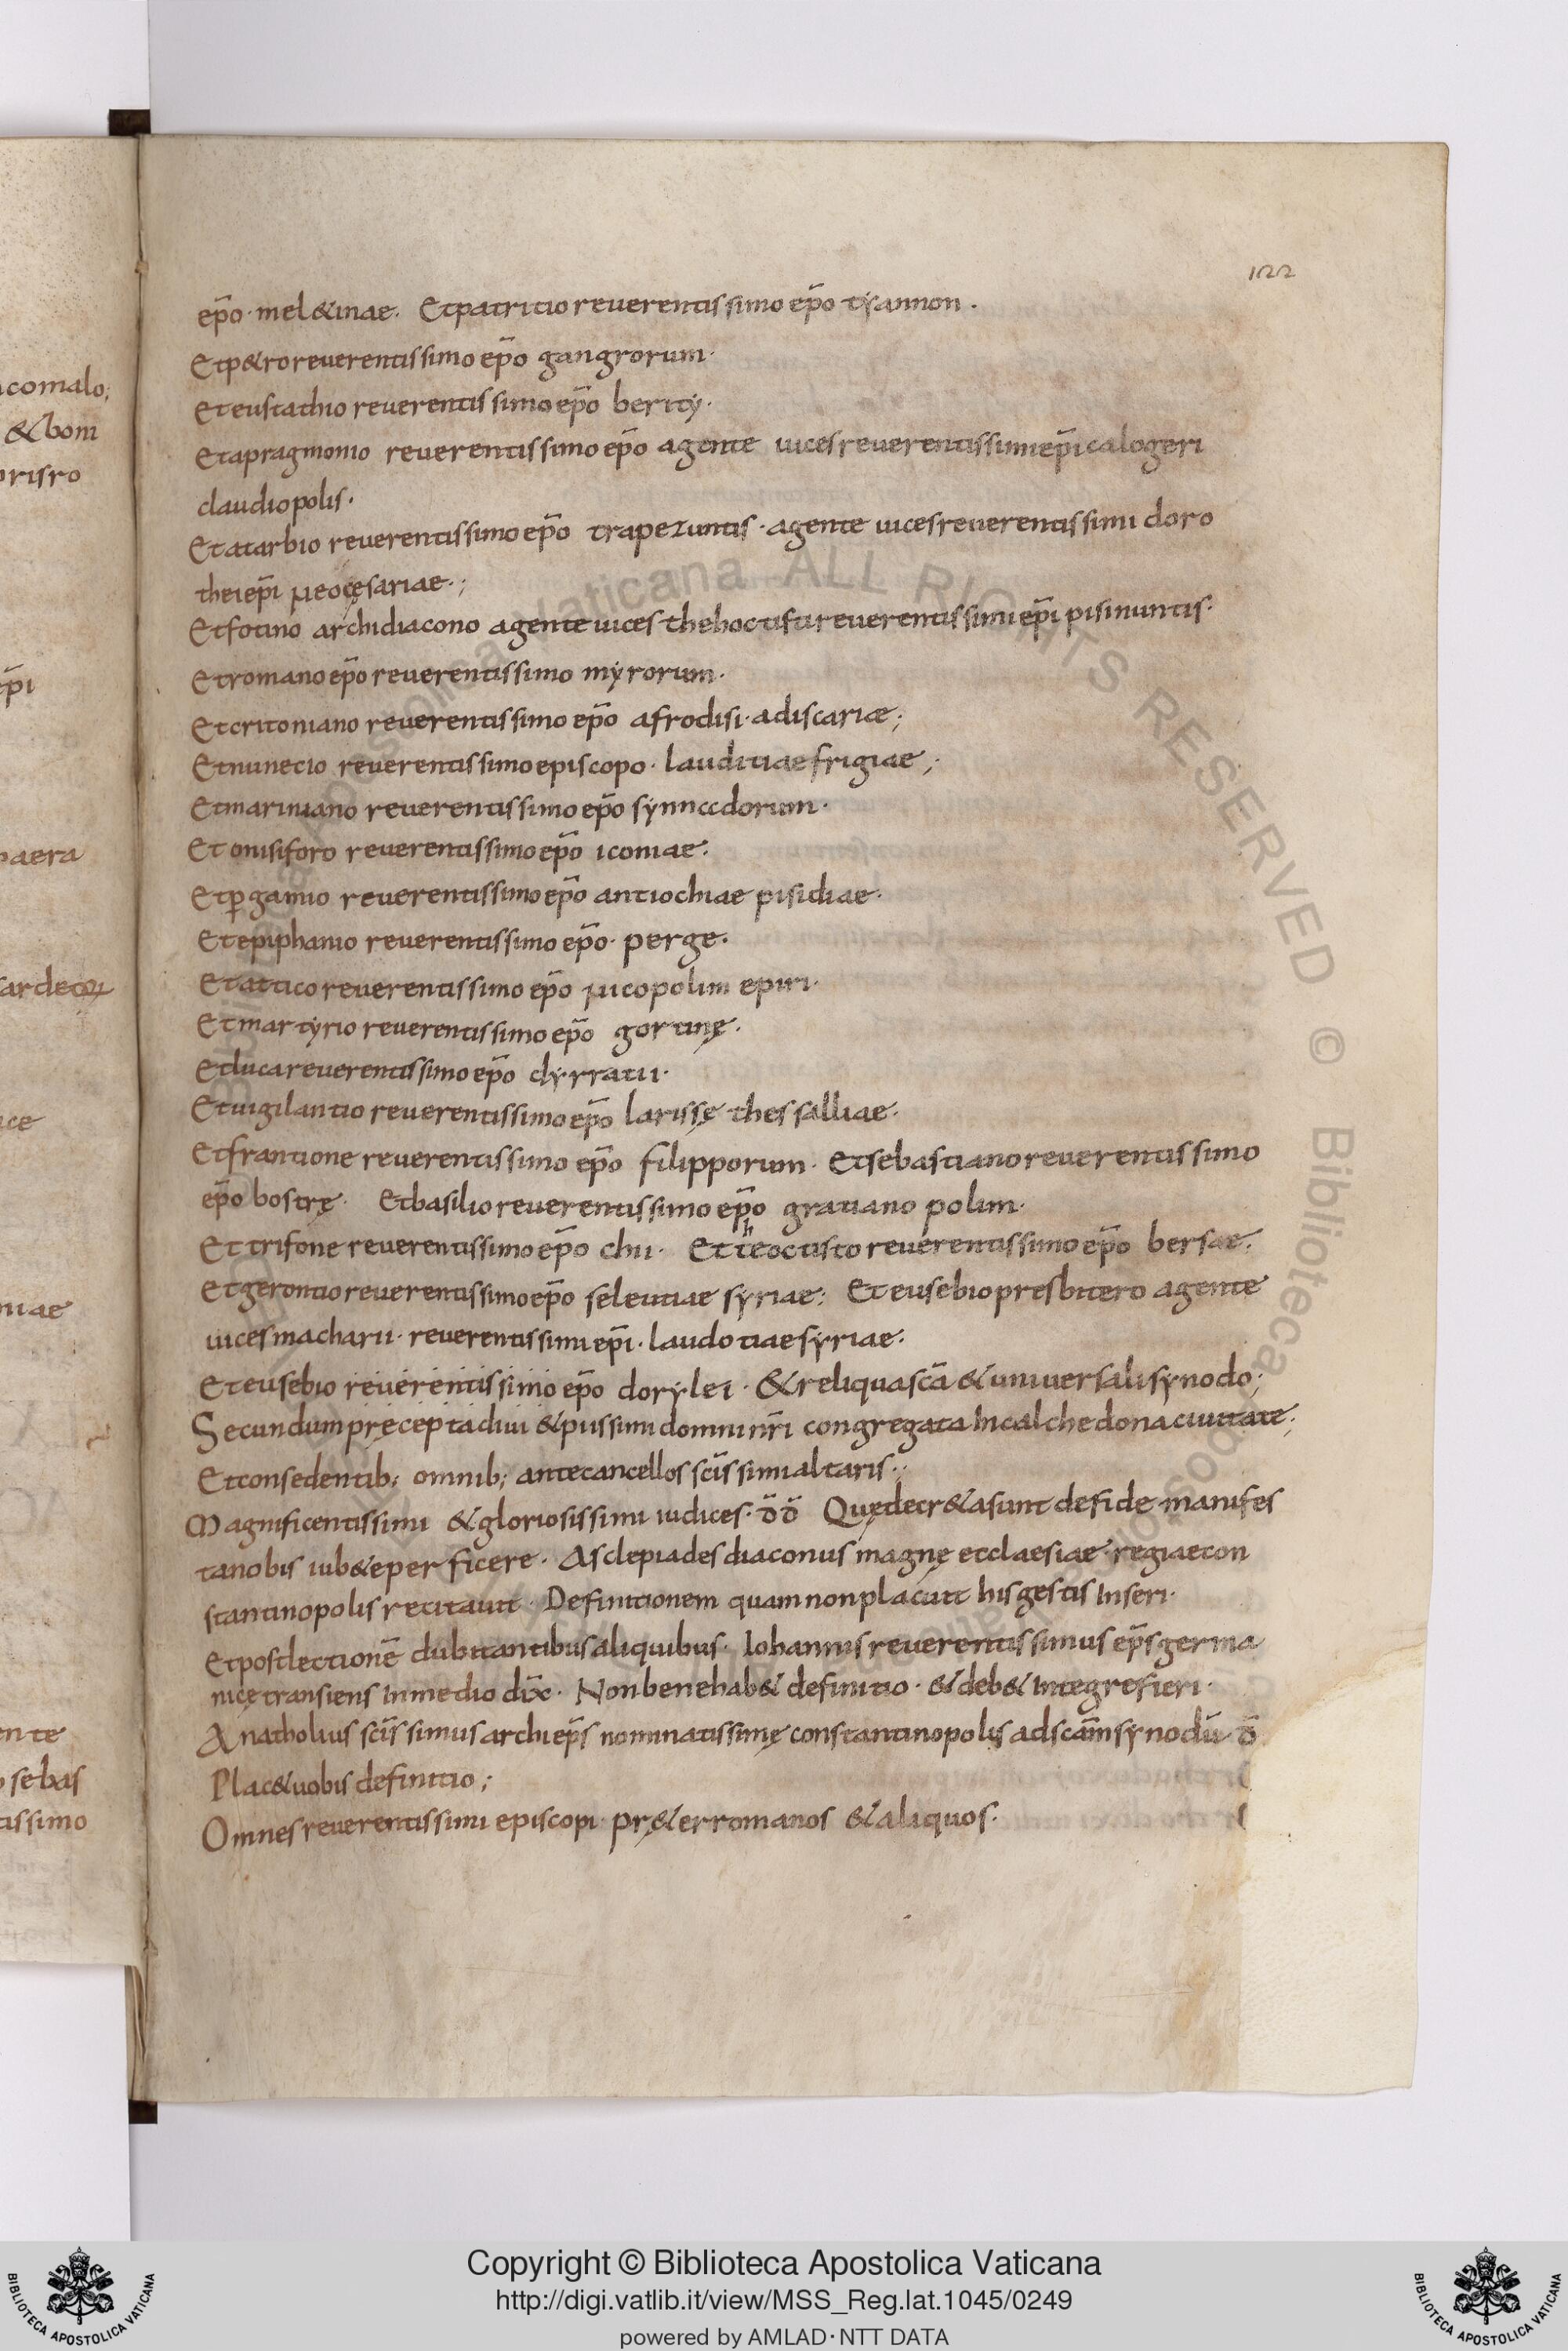 122
ep̄o· mel&inae· Et patritio reuerentissimo ep̄o tẏannon·
Et p&ro reuerentissimo ep̄o gangrorum·
Et eustathio reuerentissimo ep̄o beritẏ·
Et apragmonio reuerentissimo ep̄o agente uices reuerentissimi ep̄i calogeri
claudiopolis·
Et atarbio reuerentissimo ep̄o trapezuntis· agente uices reuerentissimi doro
thei ep̄i neocęsariae·;
Et fotino archidiacono agente uices thehoctisti reuerentissimi ep̄i pisinuntis·
Et romano ep̄o reuerentissimo mẏrorum·
Et critoniano reuerentissimo ep̄o afrodisi· adiscariæ;
Et nunecio reuerentissimo episcopo· lauditiae frigiae;
Et mariniano reuerentissimo ep̄o sẏnnccdorum·
Et onisiforo reuerentissimo ep̄o iconiae:
Et ꝑgamio reuerentissimo ep̄o antiochiae pisidiae·
Et epiphanio reuerentissimo ep̄o· perge·
Et attico reuerentissimo ep̄o nicopolim epiri·
Et martẏrio reuerentissimo ep̄o gortinę·
Et luca reuerentissimo ep̄o dẏrratii·
Et uigilantio reuerentissimo ep̄o larissę thessalliae·
Et frantione reuerentissimo ep̄o filipporum· Et sebastiano reuerentissimo
ep̄o bostrę· Et basilio reuerentissimo ep̄o gratiano polim·
Et trifone reuerentissimo ep̄o chii· Et theoctisto reuerentissimo ep̄o bersae·
Et gerontio reuerentissimo ep̄o seleutiae sẏriae: Et eusebio presbitero agente
uices macharii· reuerentissimi ep̄i· laudotiae sẏriae·
Et eusebio reuerentissimo ep̄o dorẏlei· & reliqua sc̄a & uniuersali sẏnodo;
Secundum pręcepta diui & piissimi domni nr̄i congregata In calchedona ciuitate;
Et consedentib; omnib; ante cancellos sc̄issimi altaris·
Magnificentissimi & gloriosissimi iudices· d̄d̄ Quę decr&a sunt de fide manifes
ta nobis iub&e perficere· Asclepiades diaconus magnę ecclaesiae regiae con
stantinopolis recitauit· Definitionem quam non placuit his gestis Inseri·
Et post lectionē dubitantibus aliquibus· Iohannis reuerentissimus ep̄s germa
nicę transiens In medio dix̄· Non bene hab& definitio· & deb& Integre fieri·
Anatholius sc̄issimus archiep̄s nominatissimę constantinopolis ad sc̄am sẏnodū d̄
Plac& uobis definitio;
Omnes reuerentissimi episcopi pr&er romanos & aliquos·
acomalo;
& boni
prisro
ep̄i
paera
sardecoꝝ
ice
niae
ente
o sebas
tissimo
Copyright © Biblioteca Apostolica Vaticana
http://digi.vatlib.it/view/MSS_Reg.lat.1045/0249
powered by AMLAD·NTT DATA
BIBLIOTECA APOSTOLICA VATICANA
BIBLIOTECA APOSTOLICA VATICANA